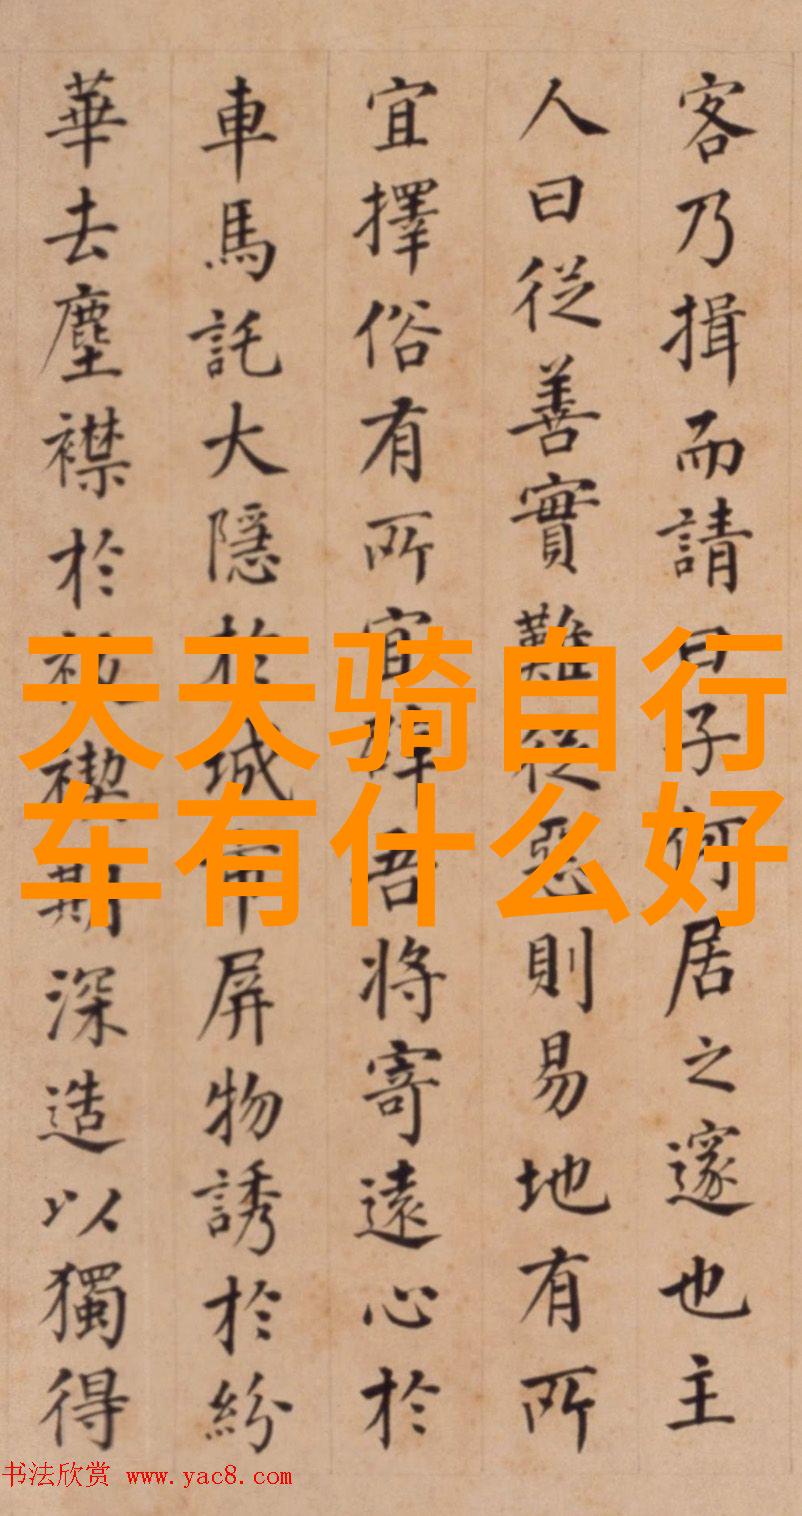 客乃揖而請曰子何居之邃也主
人曰從善實難從惡則易地有所
宜擇俗有所宜辟吾將寄遠心於
車馬託大隱於城市屏物誘於紛
華去塵襟於祓禊期深造以獨得
天天骑自行
车有什么好
书法欣赏 www.yac8.com